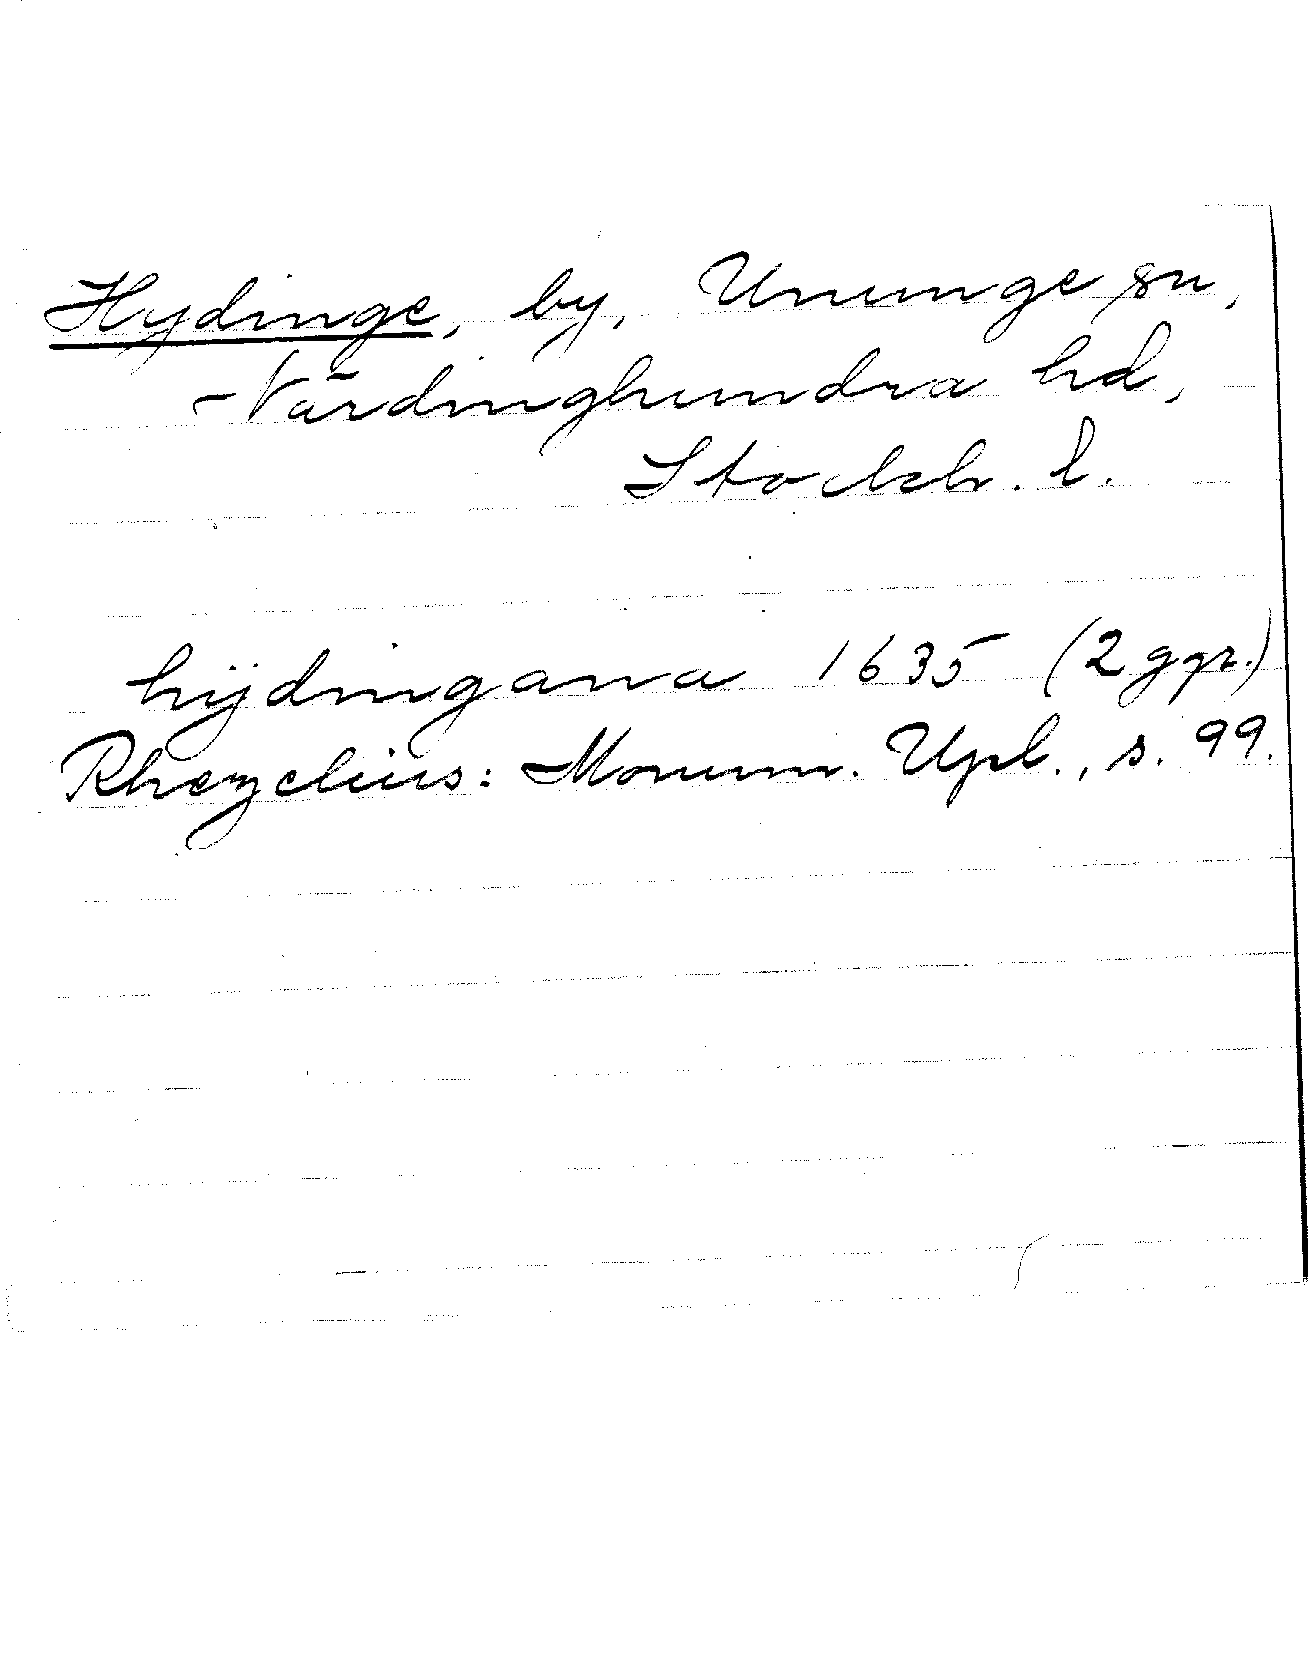 Hydinge, by, Ununge sn,
Närdinghundra hd,
Stockh. l.
hÿdingana 1635 (2 ggr.)
Rhezelius: Monum. Upl., s. 99.